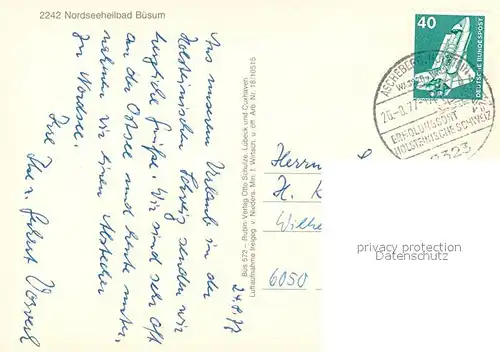 2242 Nordseeheilbad Büsum
24.8.77
Aus unserem Urlaub in der
Holsteinischen Schweiz senden wir
herzliche Grüße. Wir sind sehr oft
an der Ostsee und heute
nehmen wir einen Abstecher
zur Nordsee.
Ihre
Büs 572 - Rubin-Verlag Otto Schulze, Lübeck und Cuxhaven
Luftaufnahme freigeg. v. Nieders. Min. f. Wirtsch. u. off. Arb. Nr.
40
DEUTSCHE BUNDESPOST
ASCHEBERG
ERHOLUNGSORT
HOLSTEINISCHE SCHWEIZ
2323
Herrn
H. K
Wilhe
6050
privacy protection
Datenschutz